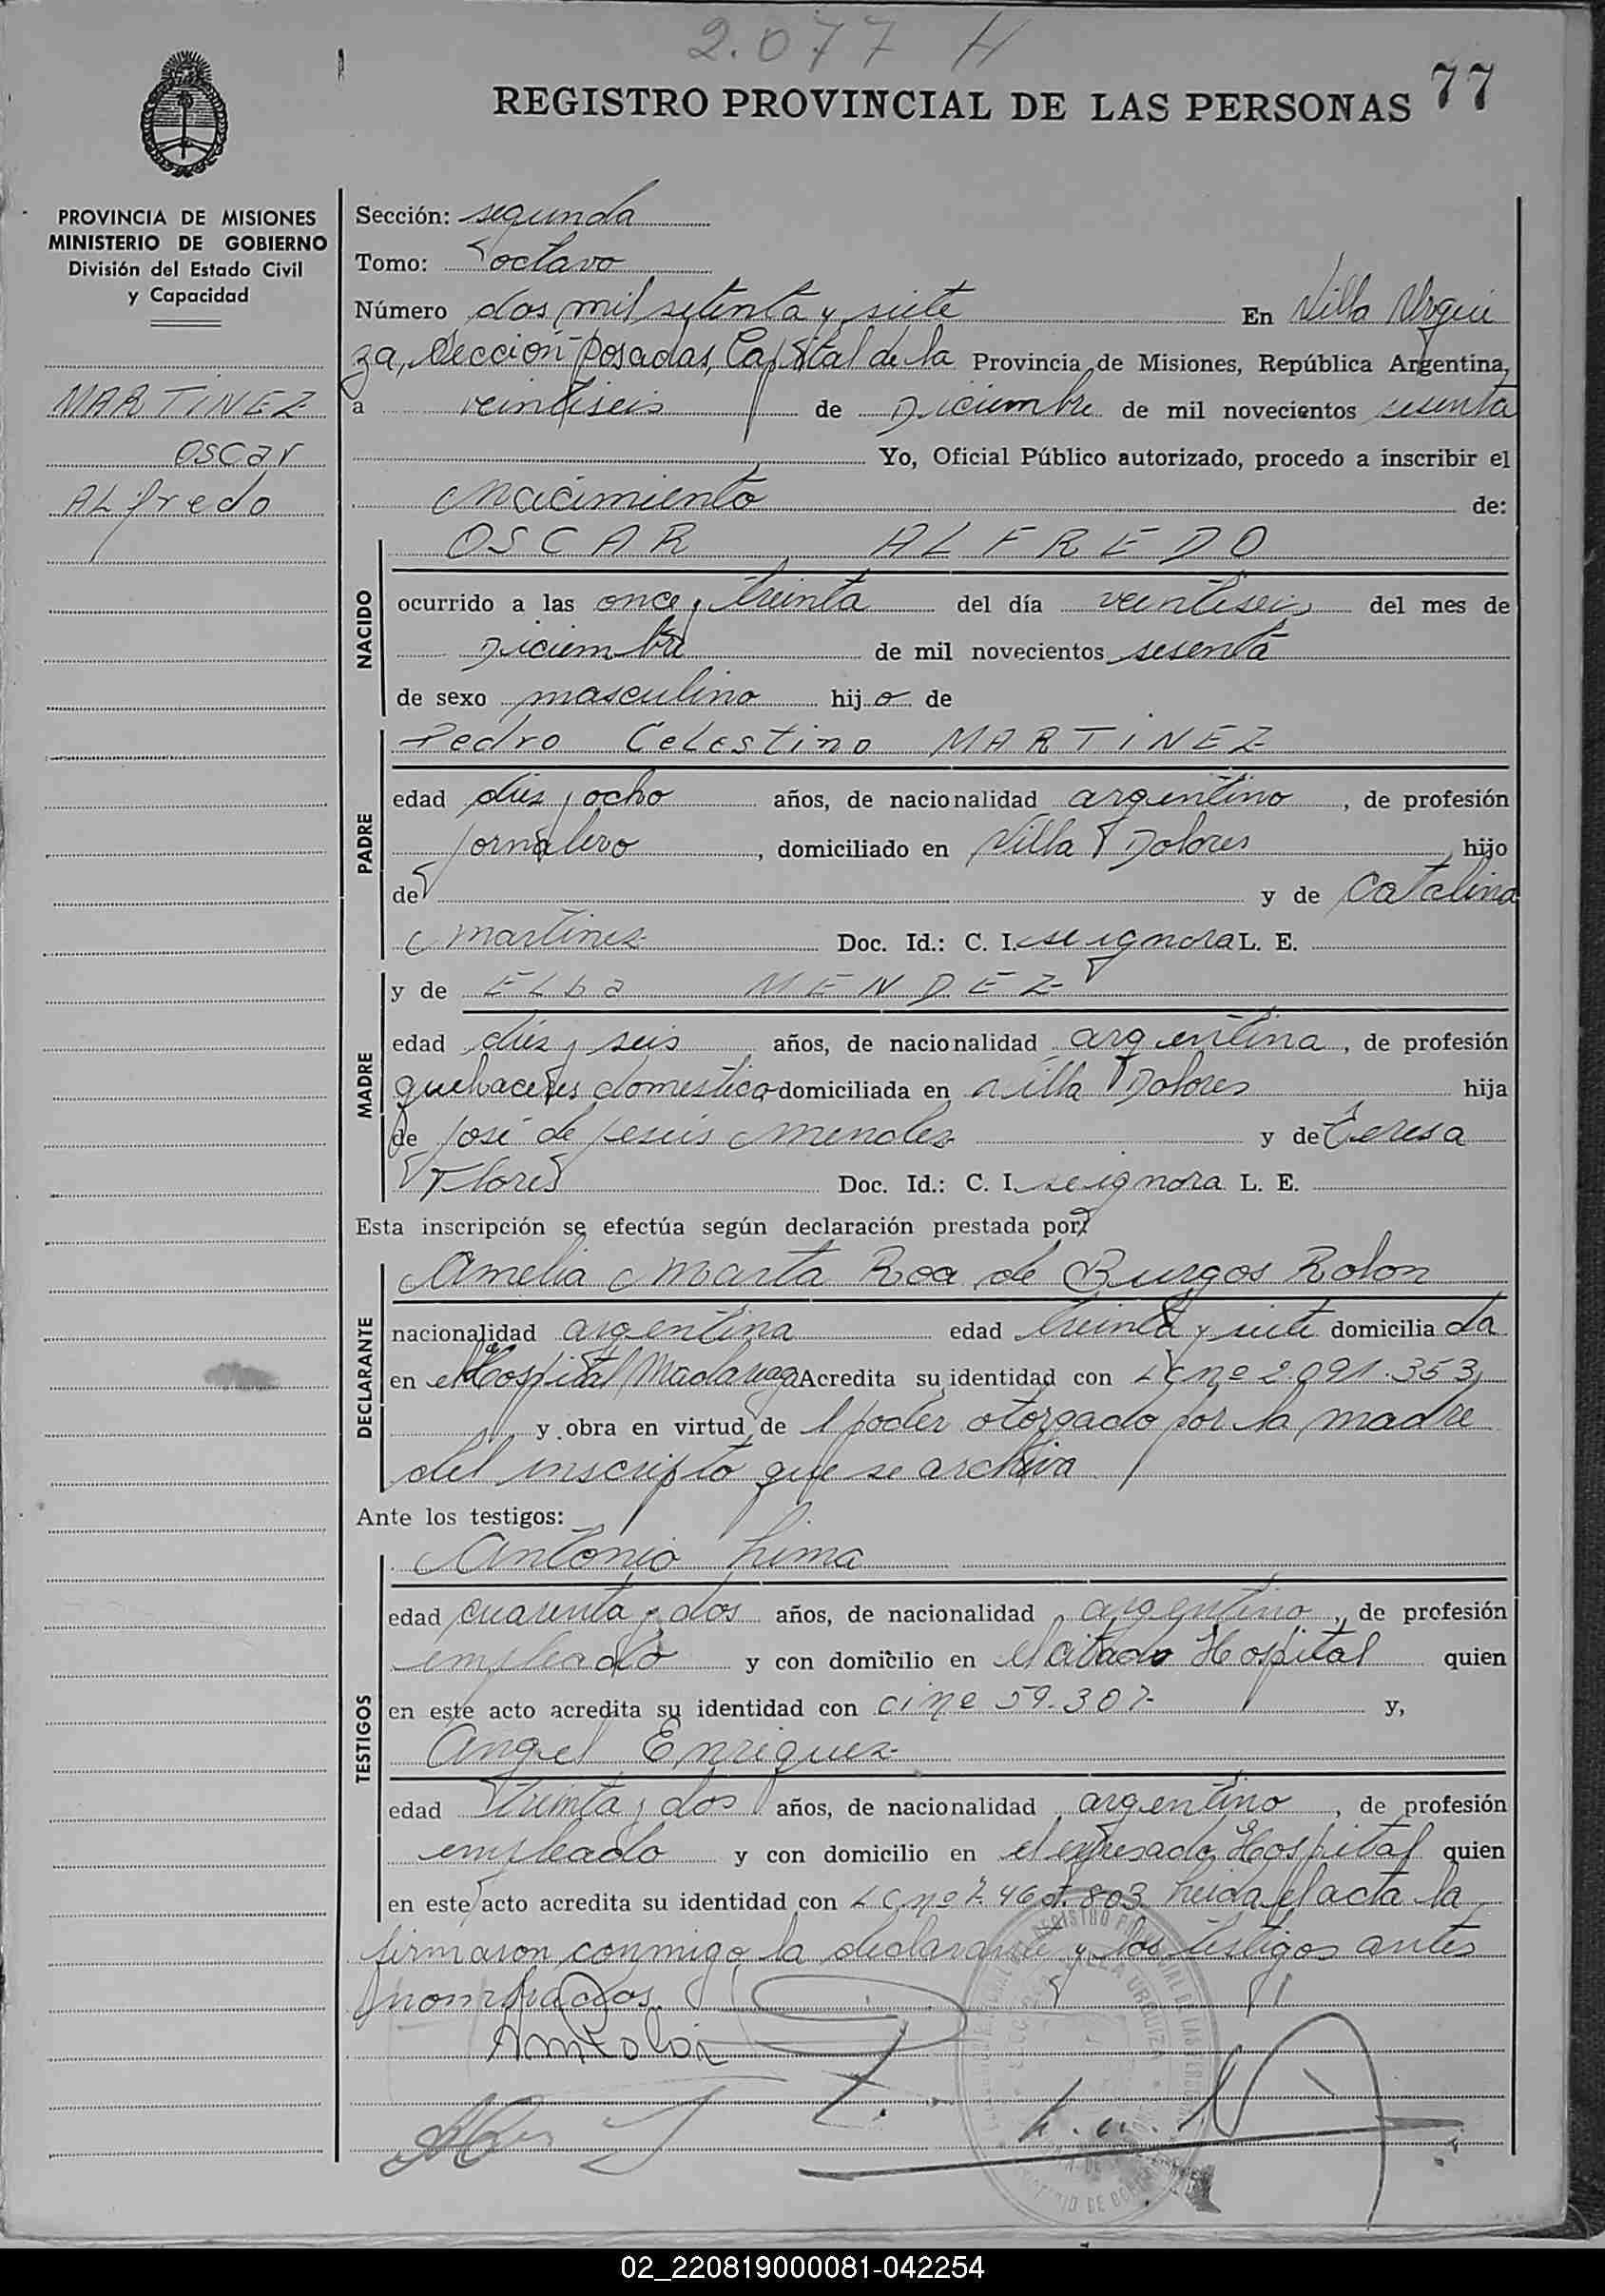 2.077 H
77
REGISTRO PROVINCIAL DE LAS PERSONAS
PROVINCIA DE MISIONES
MINISTERIO DE GOBIERNO
División del Estado Civil
y Capacidad
MARTINEZ
OSCAR
ALfredo
Sección: segunda
Tomo: octavo
Número dos mil setenta y siete En Villa Urqui
za, Sección Posadas, Capital de la Provincia de Misiones, República Argentina,
a veintiseis de Diciembre de mil novecientos sesenta
Yo, Oficial Público autorizado, procedo a inscribir el
Nacimiento de:
OSCAR ALFREDO
NACIDO
ocurrido a las once y treinta del día veintiseis del mes de
Diciembre de mil novecientos sesenta
de sexo masculino hijo de
PADRE
Pedro Celestino MARTINEZ
edad diez y ocho años, de nacionalidad argentino, de profesión
jornalero, domiciliado en Villa Dolores hijo
de y de Catalina
Martinez Doc. Id.: C. I. se ignora L. E.
MADRE
y de ELba MENDEZ
edad diez y seis años, de nacionalidad argentina, de profesión
quehaceres domestico domiciliada en villa Dolores hija
de José de Jesús Mendez y de Teresa
Flores Doc. Id.: C. I. se ignora L. E.
Esta inscripción se efectúa según declaración prestada por:
DECLARANTE
Amelia Marta Roa de Burgos Rolon
nacionalidad argentina edad treinta y siete domiciliada
en el Hospital Madariaga Acredita su identidad con LC nº 2.091.353
y obra en virtud de l poder otorgado por la madre
del inscripto que se archiva
Ante los testigos:
TESTIGOS
Antonio Lima
edad cuarenta y dos años, de nacionalidad argentino, de profesión
empleado y con domicilio en el citado Hospital quien
en este acto acredita su identidad con CI nº 59.307 y,
Angel Enriquez
edad treinta y dos años, de nacionalidad argentino, de profesión
empleado y con domicilio en el expresado Hospital quien
en este acto acredita su identidad con LC nº Leida el acta la
firmaron conmigo la declarante y los testigos antes
nombrados.
02_220819000081-042254